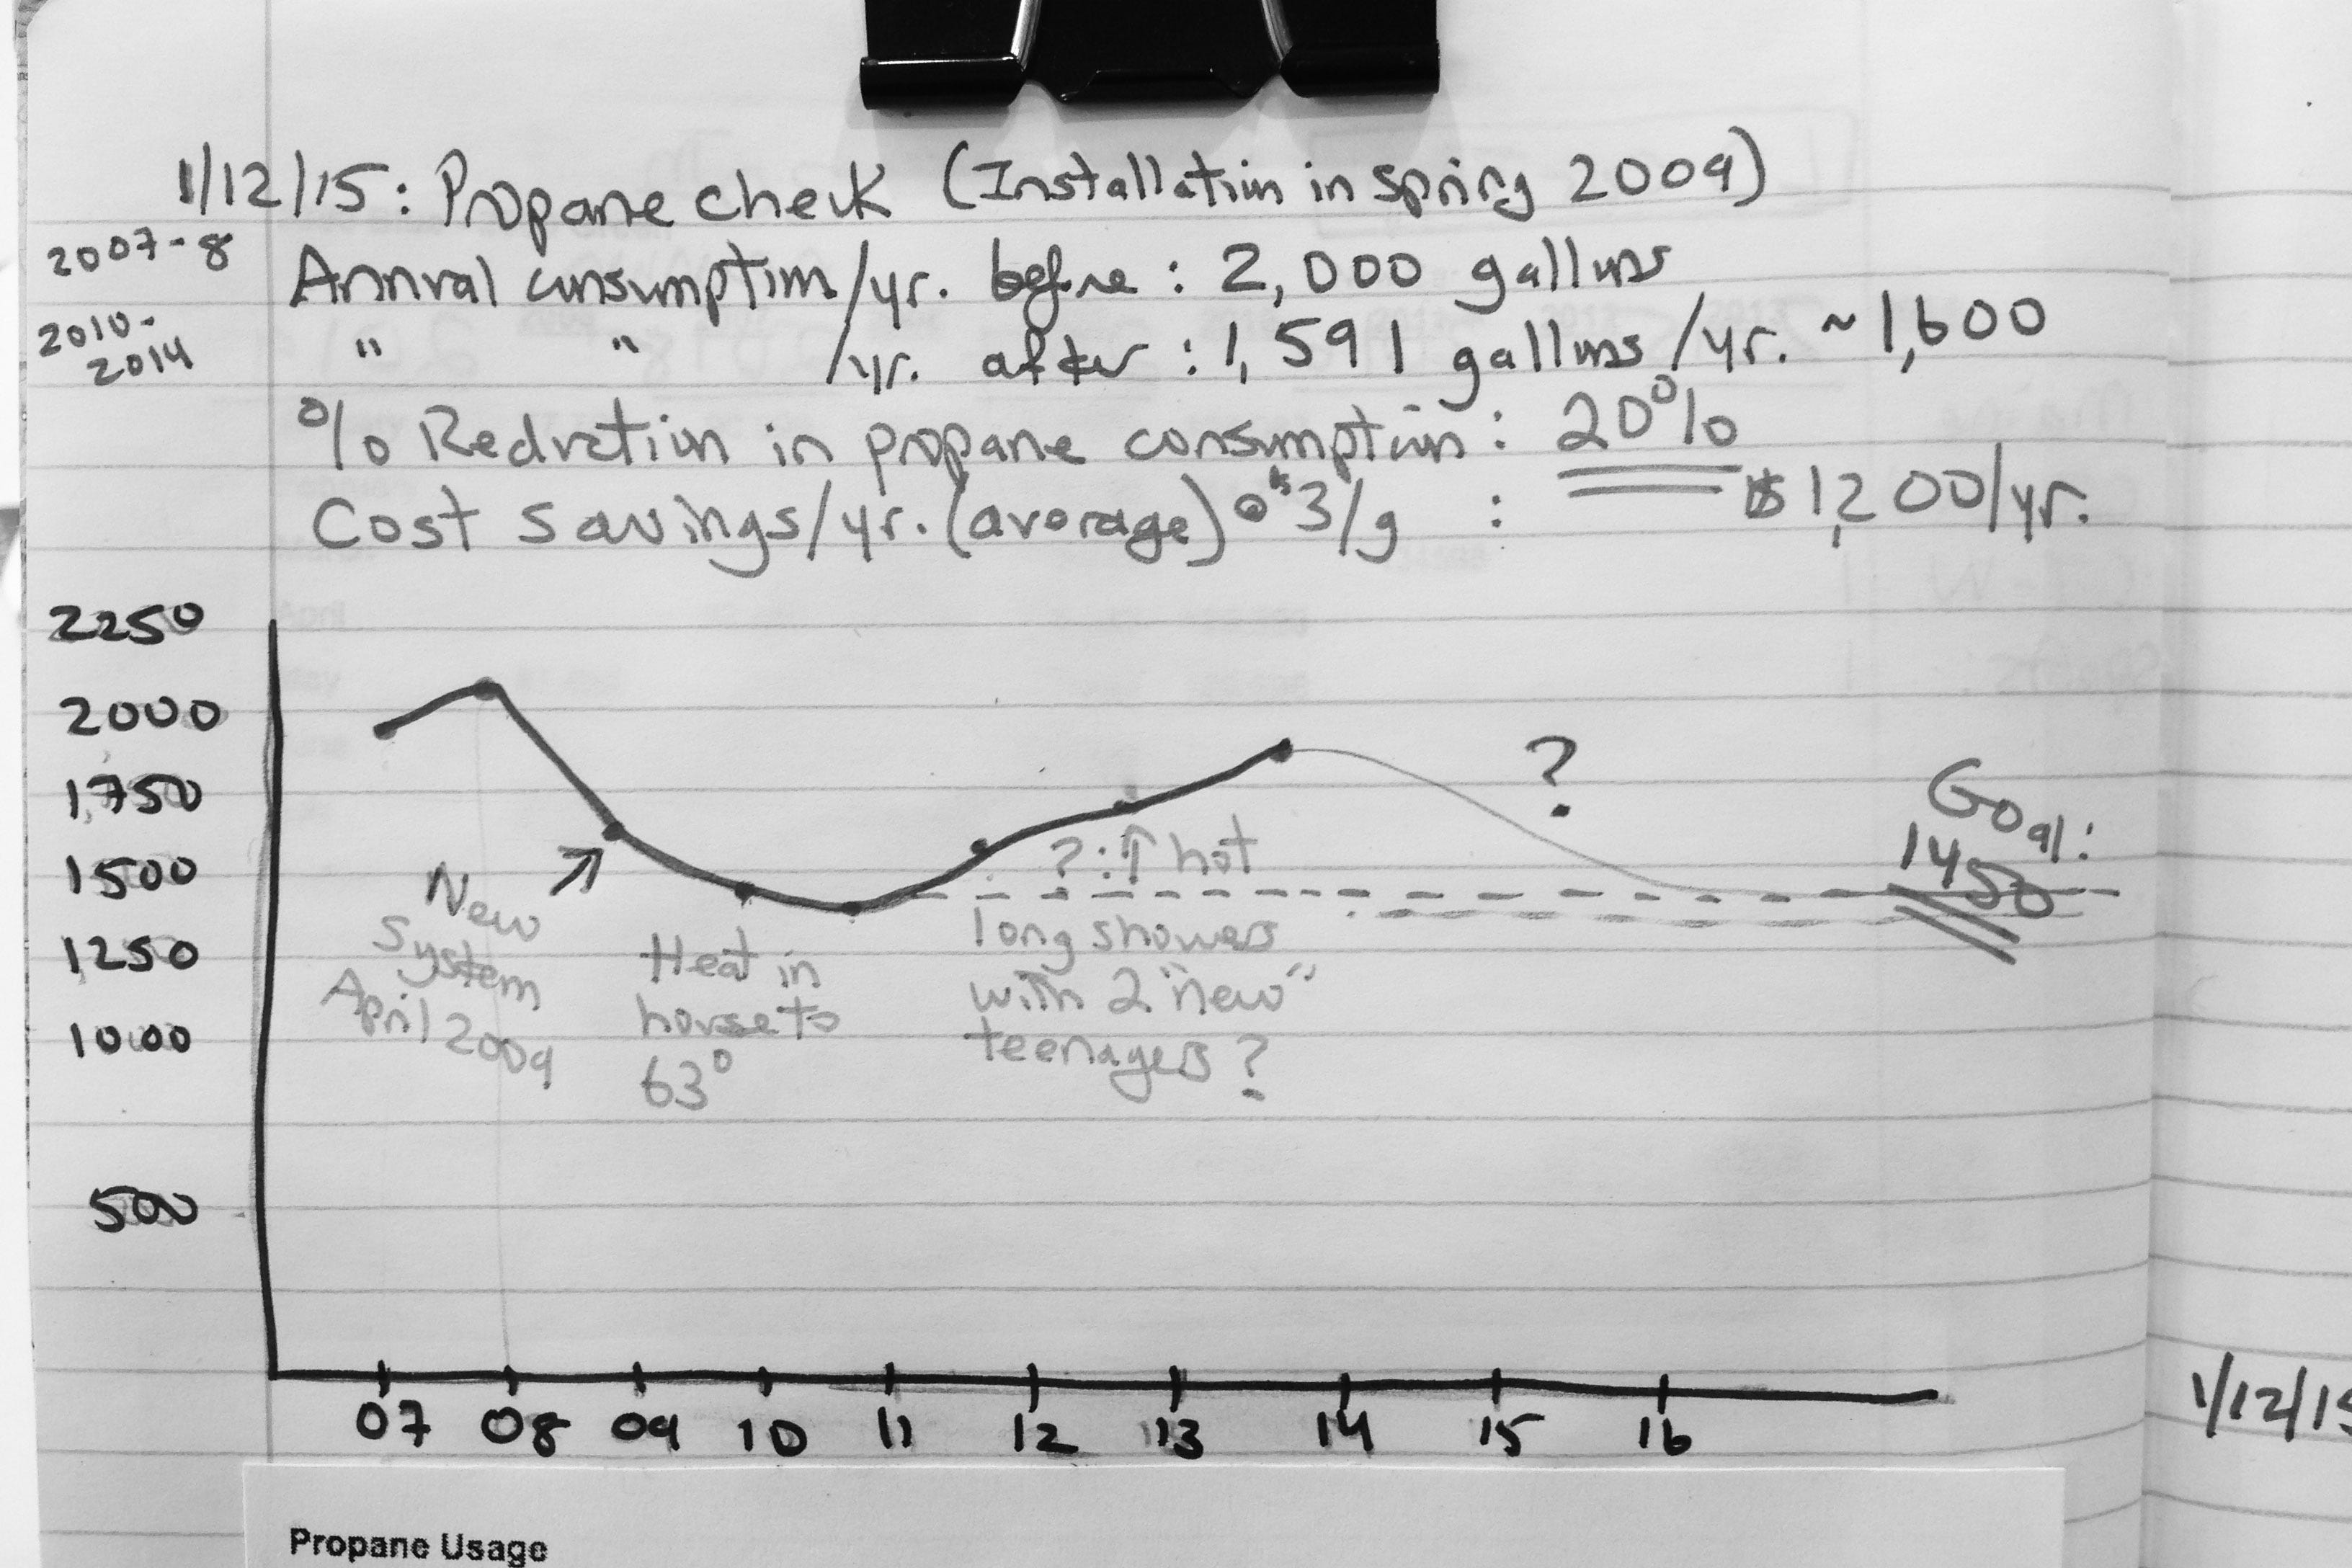 1/12/15: Propane check (Installation in spring 2009)
2007-8
Annual consumption/yr. before: 2,000 gallons
2010-
2014
" " /yr. after: 1,591 gallons/yr. ~1,600
% Reduction in propane consumption: 20%
Cost savings/yr. (average) @ $3/g : $1,200/yr.
2250
2000
1750
1500
1250
1000
500
New
System
April 2009
Heat in
house to
63°
?:↑ hot
long showers
with 2 "new"
teenagers?
?
Goal:
1450
07 08 09 10 11 12 13 14 15 16
1/12/15
Propane Usage